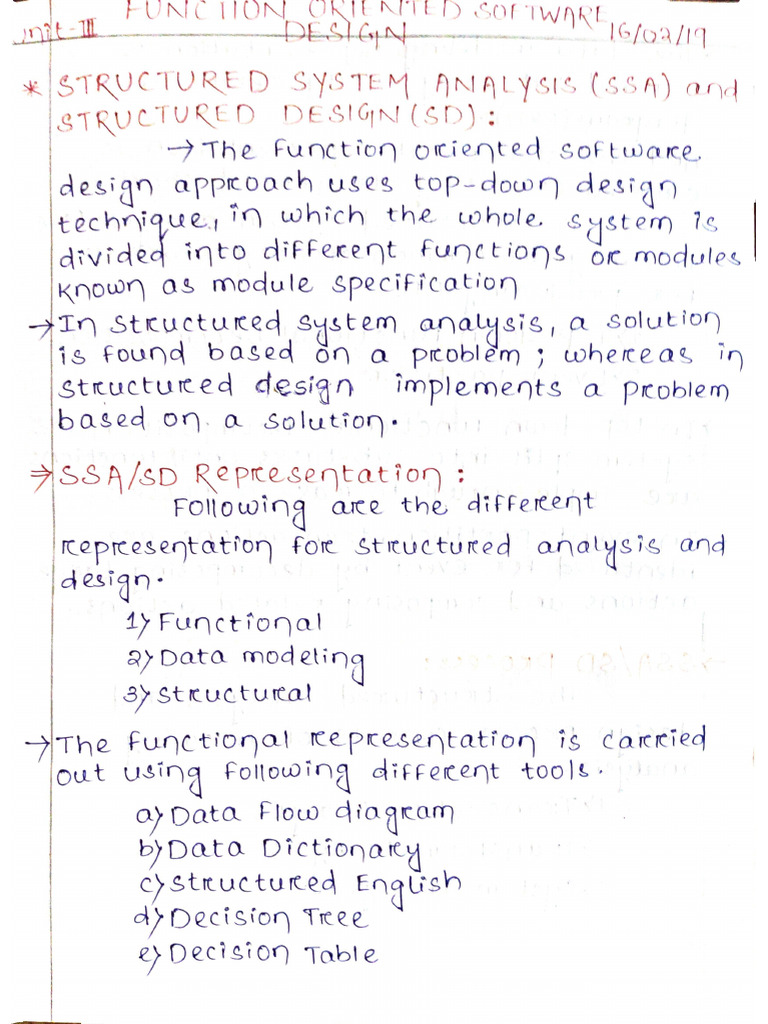 FUNCTION ORIENTED SOFTWARE
Unit-III DESIGN 16/02/19
* STRUCTURED SYSTEM ANALYSIS (SSA) and
STRUCTURED DESIGN (SD) :
→ The function oriented software
design approach uses top-down design
technique, in which the whole system is
divided into different functions or modules
known as module specification
→ In structured system analysis, a solution
is found based on a problem ; whereas in
structured design implements a problem
based on a solution.
⇒ SSA/SD Representation :
Following are the different
representation for structured analysis and
design.
1) Functional
2) Data modeling
3) Structural
→ The functional representation is carried
out using following different tools.
a) Data Flow diagram
b) Data Dictionary
c) Structured English
d) Decision Tree
e) Decision Table